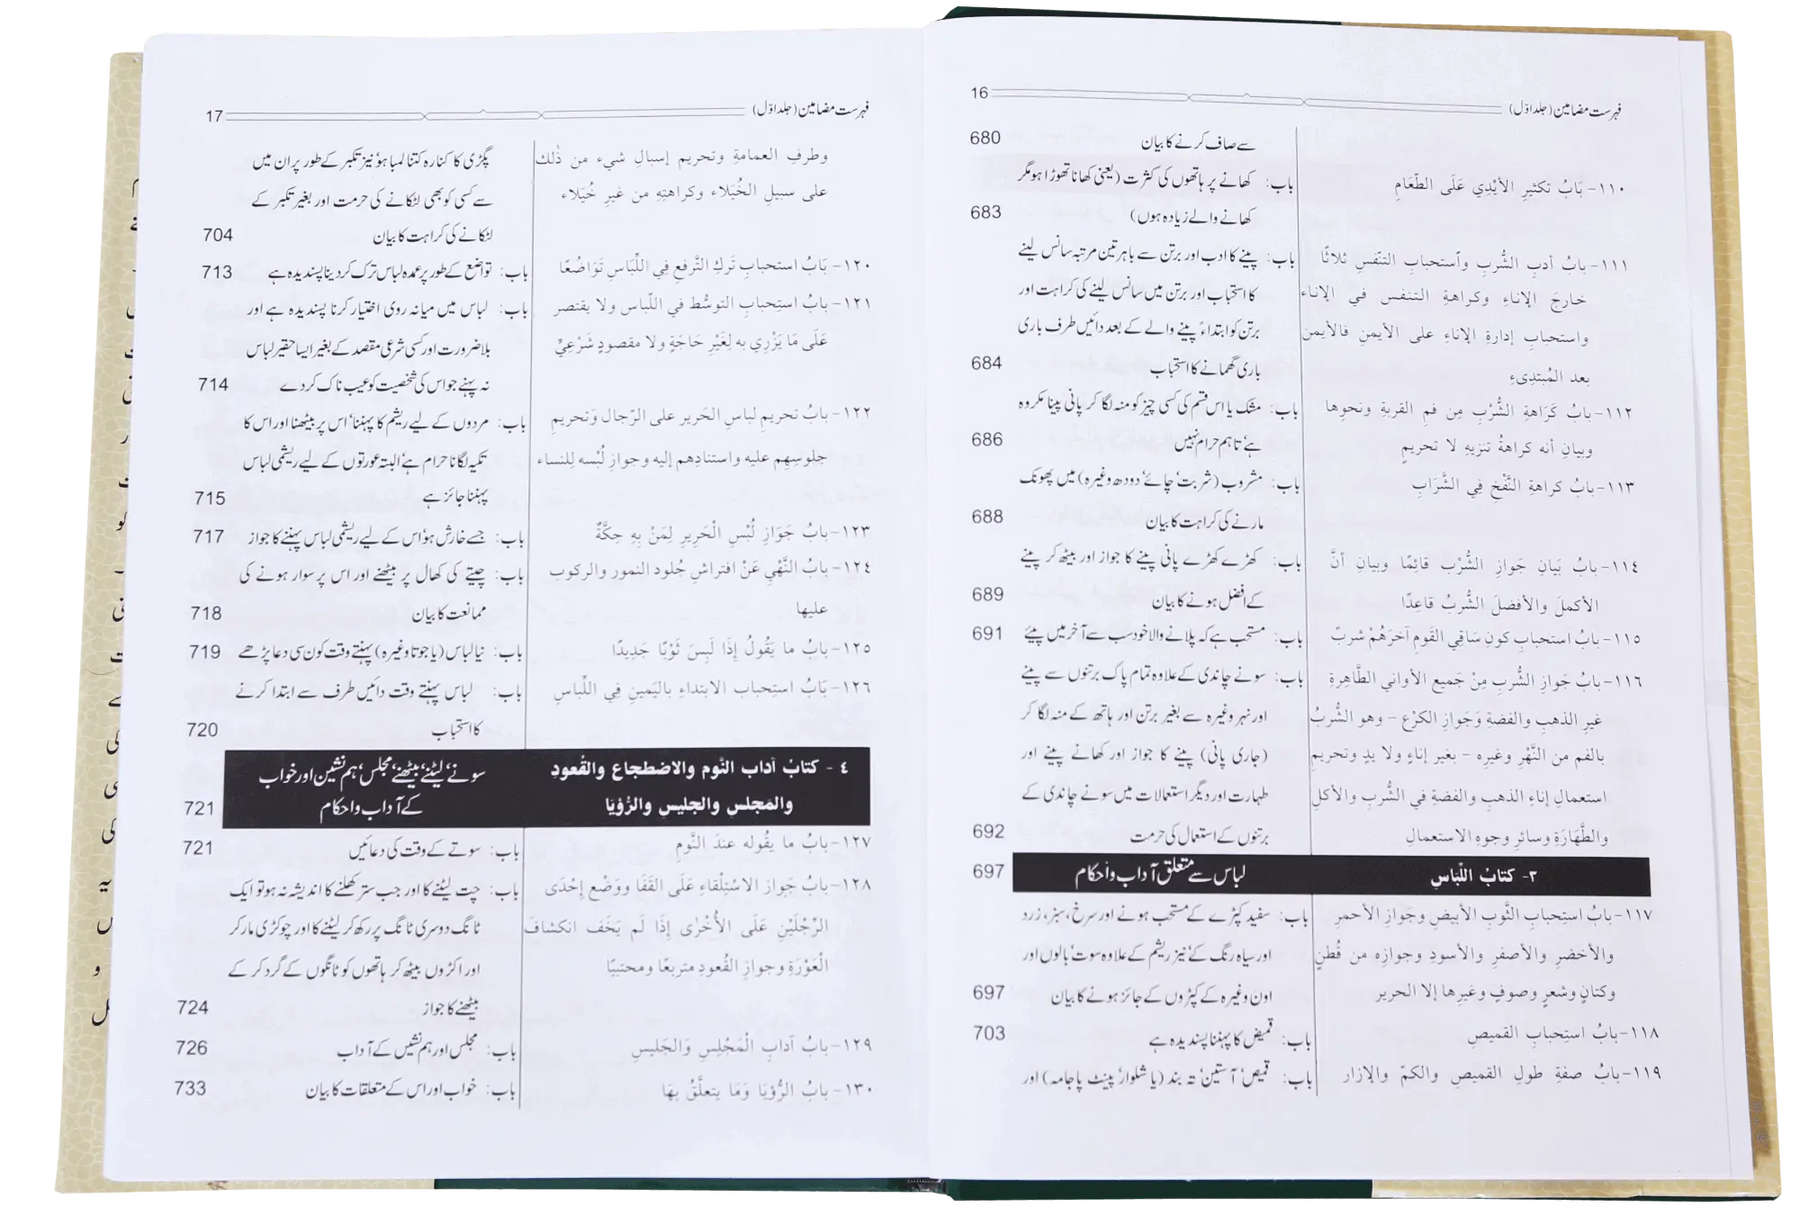 فہرست مضامین (جلد اوّل) 16
سے صاف کرنے کا بیان 680
١١٠- بَابُ تكثيرِ الأَيْدِي عَلَى الطَّعَامِ باب: کھانے پر ہاتھوں کی کثرت (یعنی کھانا تھوڑا ہو مگر
کھانے والے زیادہ ہوں) 683
١١١- بابُ أدبِ الشُّربِ واَستحبابِ التنَفّسِ ثلاثًا باب: پینے کا ادب اور برتن سے باہر تین مرتبہ سانس لینے
خارجَ الإناءِ وكراهةِ التنفس في الإناء کا استحباب اور برتن میں سانس لینے کی کراہت اور
واستحبابِ إدارةِ الإناءِ على الأيمنِ فالأيمن برتن کو ابتداءً پینے والے کے بعد دائیں طرف باری
بعد المُبتدِىءِ باری گھمانے کا استحباب 684
١١٢- بابُ كَرَاهةِ الشُّرْبِ مِن فمِ القربةِ ونحوِها باب: مشک یا اس قسم کی کسی چیز کو منہ لگا کر پانی پینا مکروہ
وبيانِ أنه كراهةُ تنزيهٍ لا تحريمٍ ہے، تاہم حرام نہیں 686
١١٣- بابُ كراهةِ النَّفْخِ فِي الشَّرَابِ باب: مشروب (شربت، چائے، دودھ وغیرہ) میں پھونک
مارنے کی کراہت کا بیان 688
١١٤- بابُ بَيَانِ جَوازِ الشُّرْبِ قائِمًا وبيانِ أنَّ باب: کھڑے کھڑے پانی پینے کا جواز اور بیٹھ کر پینے
الأكملَ والأفضلَ الشُّربُ قاعِدًا کے افضل ہونے کا بیان 689
١١٥- بابُ استحبابِ كونِ سَاقِي القَومِ آخرَهُمْ شربً باب: مستحب ہے کہ پلانے والا خود سب سے آخر میں پیئے 691
١١٦- بابُ جَوازِ الشُّربِ مِنْ جَميعِ الأَواني الطَّاهِرةِ باب: سونے چاندی کے علاوہ تمام پاک برتنوں سے پینے
غيرِ الذهبِ والفضةِ وَجَوازِ الكرْعِ - وهو الشُّربُ اور نہر وغیرہ سے بغیر برتن اور ہاتھ کے منہ لگا کر
بالفمِ من النَّهْرِ وغيرِه - بغيرِ إناءٍ ولا يدٍ وتحريمِ (جاری پانی) پینے کا جواز اور کھانے پینے اور
استعمالِ إناءِ الذهبِ والفضةِ في الشُّربِ والأكلِ طہارت اور دیگر استعمالات میں سونے چاندی کے
والطَّهَارَةِ وسائرِ وجوهِ الاستعمالِ برتنوں کے استعمال کی حرمت 692
٣- كتابُ اللّباسِ لباس سے متعلق آداب و احکام 697
١١٧- بابُ استِحبابِ الثَّوبِ الأبيضِ وجَوازِ الأحمرِ باب: سفید کپڑے کے مستحب ہونے اور سرخ، سبز، زرد
والأخضرِ والأصفرِ والأسودِ وجوازِه من قُطنٍ اور سیاہ رنگ کے، نیز ریشم کے علاوہ سوت، بالوں اور
وكتانٍ وشعرٍ وصوفٍ وغيرِها إلا الحرير اون وغیرہ کے کپڑوں کے جائز ہونے کا بیان 697
١١٨- بابُ استِحبابِ القميصِ باب: قمیض کا پہننا پسندیدہ ہے 703
١١٩- بابُ صفةِ طولِ القميصِ والكمِّ والإزار باب: قمیص، آستین، تہ بند (یا شلوار، پینٹ پاجامہ) اور
فہرست مضامین (جلد اوّل) 17
وطرفِ العمامةِ وتحريم إسبالِ شيء من ذٰلك پگڑی کا کنارہ کتنا لمبا ہو، نیز تکبر کے طور پر ان میں
على سبيلِ الخُيَلاء وكراهتِهِ من غيرِ خُيَلاء سے کسی کو بھی لٹکانے کی حرمت اور بغیر تکبر کے
لٹکانے کی کراہت کا بیان 704
١٢٠- بَابُ استحبابِ تَركِ التَّرفعِ فِي اللِّبَاسِ تَوَاضُعًا باب: تواضع کے طور پر عمدہ لباس ترک کر دینا پسندیدہ ہے 713
١٢١- بابُ استِحبابِ التوسُّط في اللّباس ولا يقتصر باب: لباس میں میانہ روی اختیار کرنا پسندیدہ ہے اور
عَلَى مَا يَزْرِي به لِغَيْرِ حَاجَةٍ ولا مقصودٍ شَرْعِيٍّ بلا ضرورت اور کسی شرعی مقصد کے بغیر ایسا حقیر لباس
نہ پہنے جو اس کی شخصیت کو عیب ناک کر دے 714
١٢٢- بابُ تحريمِ لباسِ الحَرير على الرّجال وَتحريمِ باب: مردوں کے لیے ریشم کا پہننا، اس پر بیٹھنا اور اس کا
جلوسِهم عليه واستنادِهم إليه وجوازِ لُبْسه لِلنساء تکیہ لگانا حرام ہے، البتہ عورتوں کے لیے ریشمی لباس
پہننا جائز ہے 715
١٢٣- بابُ جَوَازِ لُبْسِ الْحَرِيرِ لِمَنْ بِهِ حِكَّةٌ باب: جسے خارش ہو، اس کے لیے ریشمی لباس پہننے کا جواز 717
١٢٤- بابُ النَّهْيِ عَنْ افتراشِ جُلود النمور والركوب باب: چیتے کی کھال پر بیٹھنے اور اس پر سوار ہونے کی
عليها ممانعت کا بیان 718
١٢٥- بابُ ما يَقُولُ إذَا لَبِسَ ثَوْبًا جَدِيدًا باب: نیا لباس (یا جوتا وغیرہ) پہنتے وقت کون سی دعا پڑھے 719
١٢٦- بَابُ استِحباب الابتداءِ باليَمينِ فِي اللِّباسِ باب: لباس پہنتے وقت دائیں طرف سے ابتدا کرنے
کا استحباب 720
٤ - كتابُ آداب النَّوم والاضطجاع والقُعودِ سونے، لیٹنے، بیٹھنے، مجلس، ہم نشین اور خواب
والمَجلسِ والجليسِ والرُّؤيَا کے آداب و احکام 721
١٢٧- بابُ ما يقُوله عندَ النَّومِ باب: سوتے وقت کی دعائیں 721
١٢٨- بابُ جَوازِ الاسْتِلْقاءِ عَلَى القَفَا ووَضْعِ إحْدَى باب: چت لیٹنے کا اور جب ستر کھلنے کا اندیشہ نہ ہو تو ایک
الرِّجلَيْنِ عَلَى الأُخْرٰى إذَا لَم يَخَف انكشافَ ٹانگ دوسری ٹانگ پر رکھ کر لیٹنے کا اور چوکڑی مار کر
الْعَوْرَةِ وجوازِ القُعودِ متربعًا ومحتبيًا اور اکڑوں بیٹھ کر ہاتھوں کو ٹانگوں کے گرد کر کے
بیٹھنے کا جواز 724
١٢٩- بابُ آدابِ الْمَجْلِسِ وَالجَليسِ باب: مجلس اور ہم نشیں کے آداب 726
١٣٠- بابُ الرُّؤيَا وَمَا يتعلَّقُ بهَا باب: خواب اور اس کے متعلقات کا بیان 733